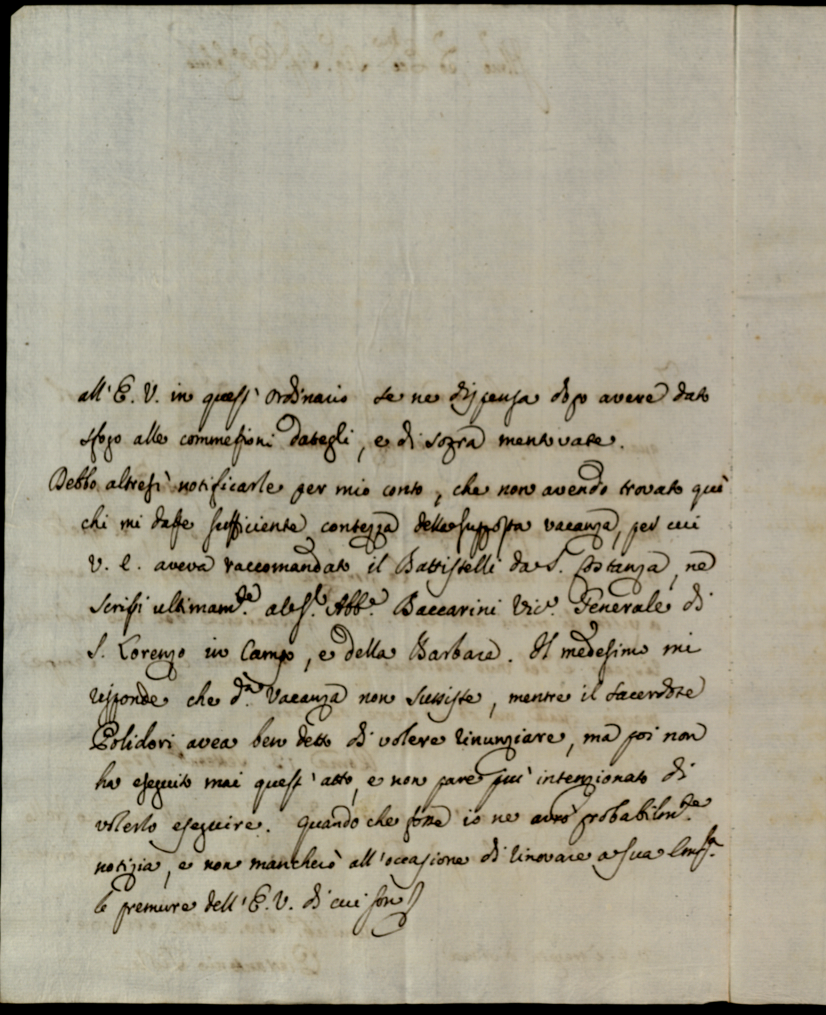 all'E. V. in quest'ordinario se ne dispensa dopo avere dato
sfogo alle commessioni dategli, e di sopra mentovate.
Debbo altresì notificarle per mio conto, che non avendo trovato quì
chi mi dasse sufficiente contezza della supposta vacanza, per cui
V. E. aveva raccomandato il Battistelli da S. Costanzo, ne
scrissi ultimam.te al Sig.r Abb.e Baccarini Vic.o Generale di
S. Lorenzo in Campo, e della Barbara. Il medesimo mi
risponde che d.a vacanza non sussiste, mentre il Sacerdote
Polidori avea ben detto di volere rinunziare, ma poi non
ha eseguito mai quest'atto, e non pare più intenzionato di
volerlo eseguire. Quando che fosse io ne avrò probabilm.te
notizia, e non mancherò all'occasione di rinovare a Sua
le premure dell'E. V. di cui sono